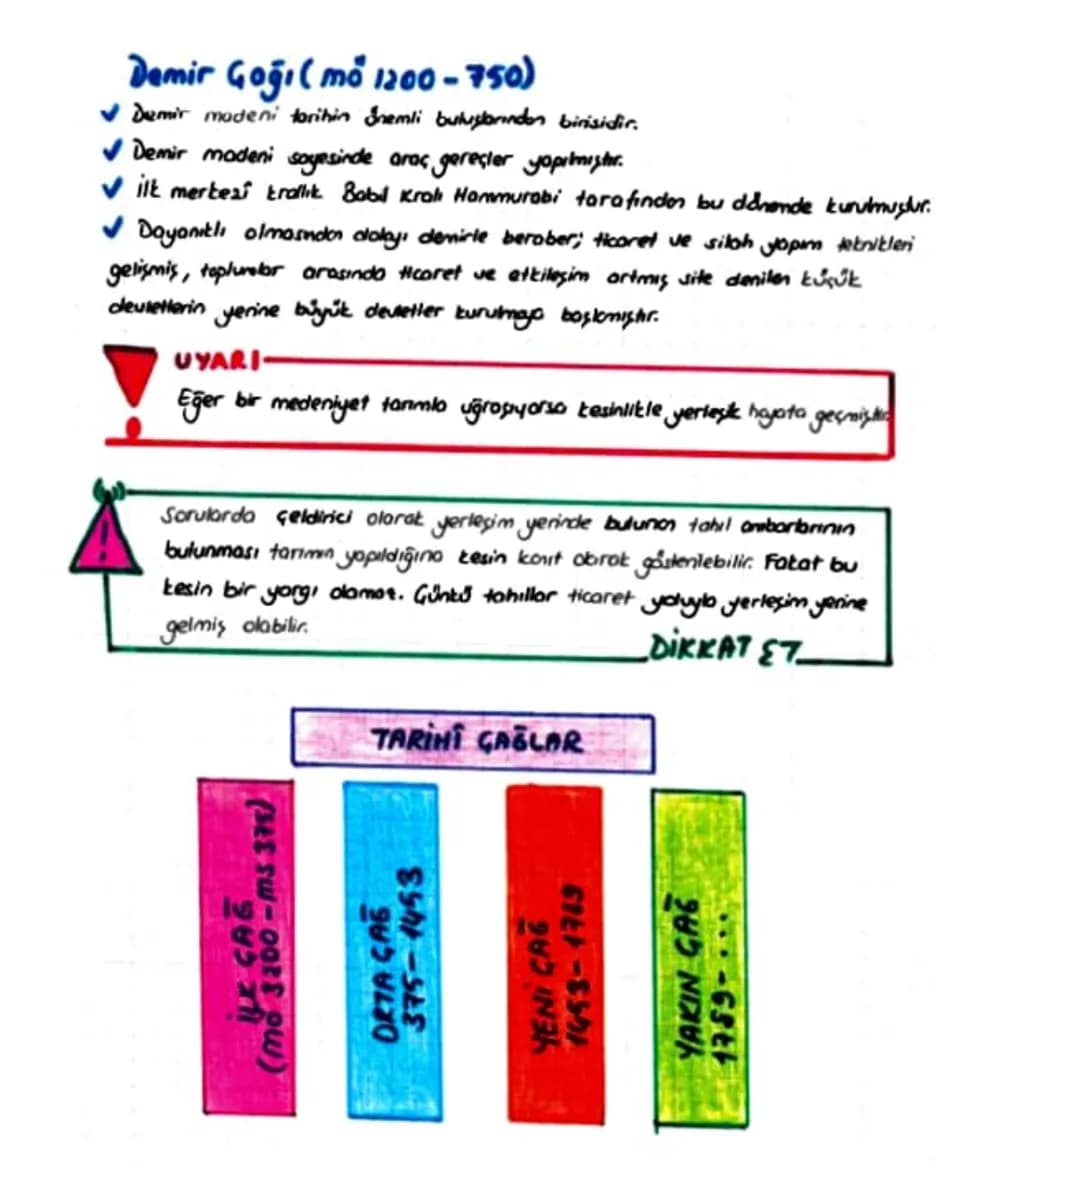 Demir Çağı (mö 1200 - 750)
Demir madeni tarihin önemli buluşlarından birisidir.
Demir madeni sayesinde araç, gereçler yapılmıştır.
İlk merkezî krallık Babil Kralı Hammurabi tarafından bu dönemde kurulmuştur.
Dayanıklı olmasından dolayı demirle beraber; ticaret ve silah yapım teknikleri
gelişmiş, toplumlar arasında ticaret ve etkileşim artmış site denilen küçük
devletlerin yerine büyük devletler kurulmaya başlamıştır.
UYARI
Eğer bir medeniyet tarımla uğraşıyorsa kesinlikle yerleşik hayata geçmiştir
Sorularda çeldirici olarak yerleşim yerinde bulunan tahıl ambarlarının
bulunması tarımın yapıldığına kesin kanıt olarak gösterilebilir. Fakat bu
kesin bir yargı olamaz. Çünkü tahıllar ticaret yoluyla yerleşim yerine
gelmiş olabilir.
DİKKAT ET
TARİHÎ ÇAĞLAR
İLK ÇAĞ
(MÖ 3200 - MS 375)
ORTA ÇAĞ
375 - 1453
YENİ ÇAĞ
1453 - 1789
YAKIN ÇAĞ
1789 - ...